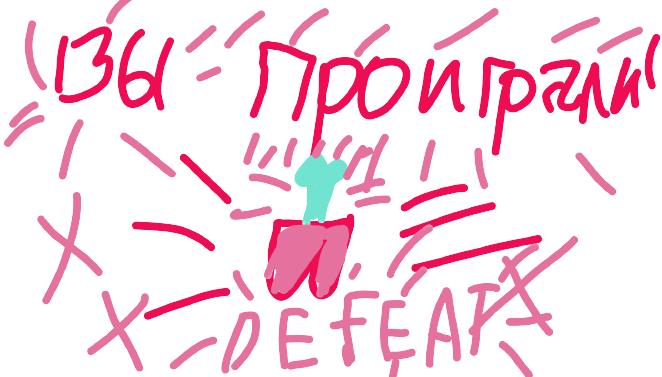 Вы проиграли
DEFEAT